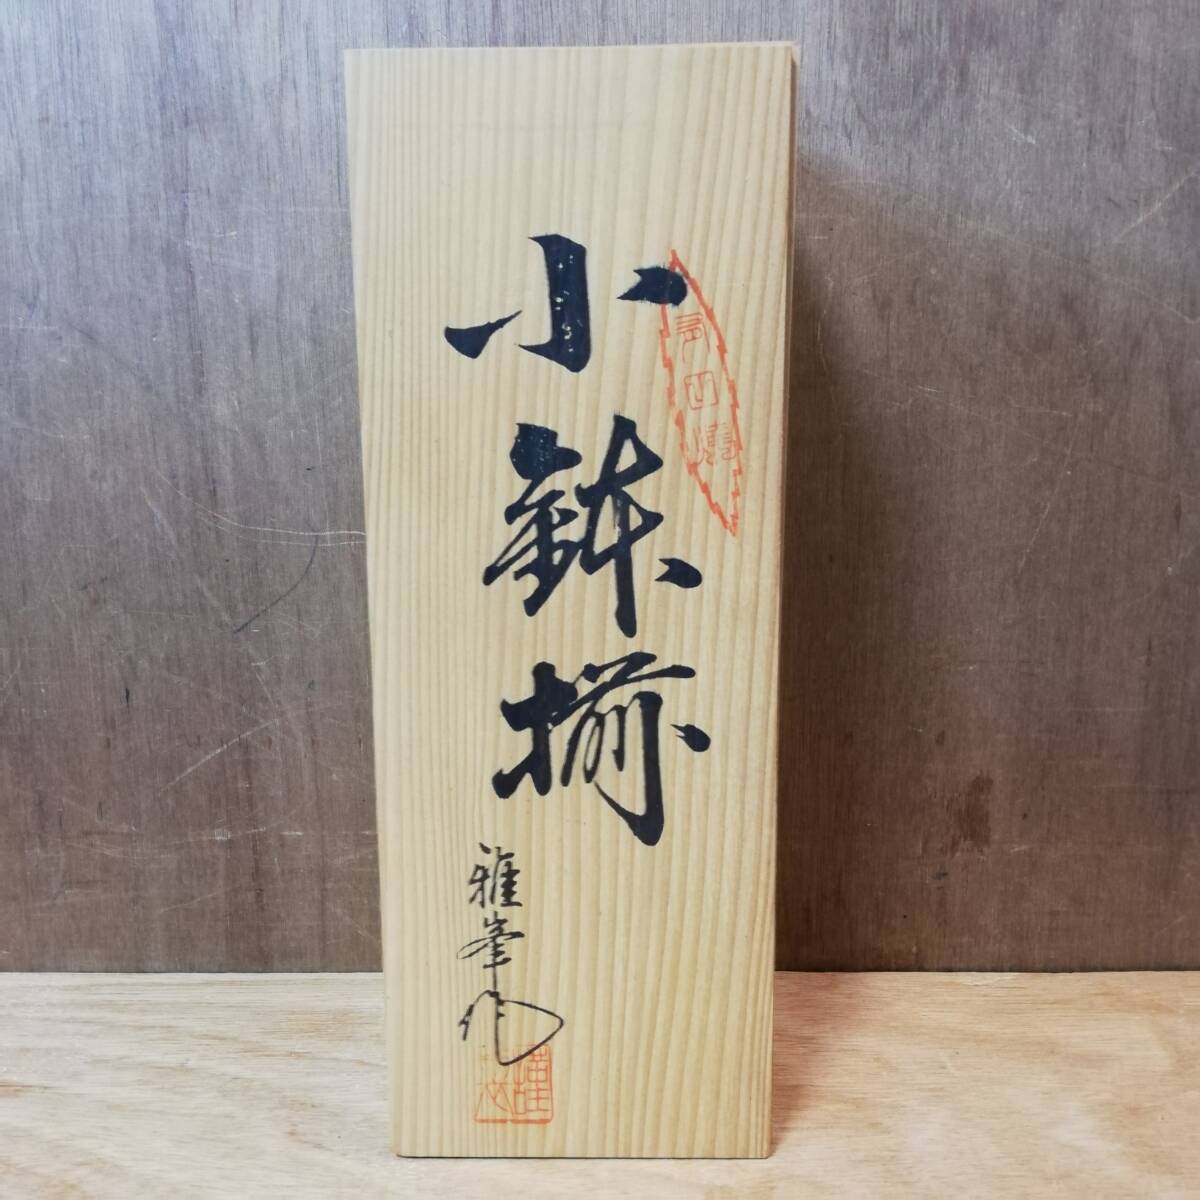 小鉢揃
有田焼
雅峯作